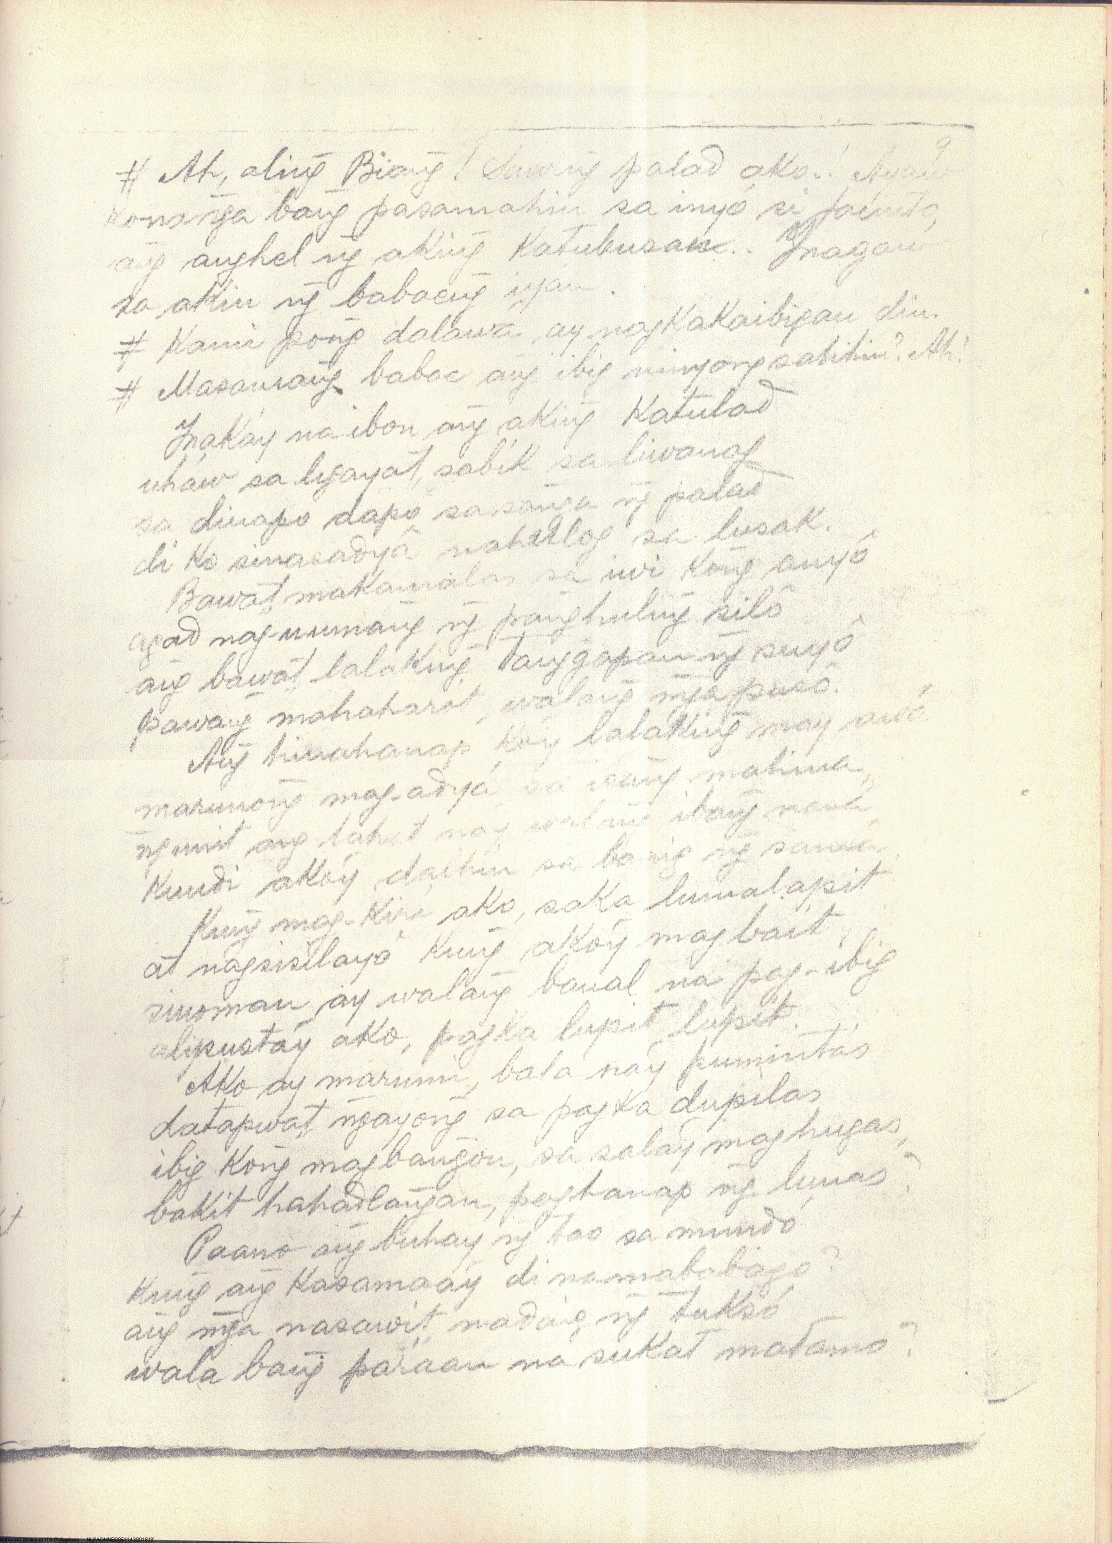 9
# Ah, aling̃ Biang̃! Sawing̃ palad ako..! Ayaw
ko na ng̃a bang̃ pasamahin sa inyó si Jacinto,
ang̃ anghel ng̃ aking̃ katubusan.. Inagaw
sa akin ng̃ babaeng̃ iyan.
# Kami pong̃ dalawa ay nagkakaibigan din.
# Masamang̃ babae ang̃ ibig ninyong sabihin? Ah!
Inakáy na ibon ang̃ aking̃ katulad
uháw sa ligayat, sabík sa liwanag
sa dinapo dapo sa sang̃a ng̃ palad
di ko sinasadyâ nahulog sa lusak.
Bawat makamalas sa iwi kong̃ anyô
agad nag-uumang̃ ng̃ pang̃huling̃ silô
ang̃ bawat lalaking̃ tang̃gapan ng̃ suyô
pawang̃ mahaharot, walang̃ mg̃a pusô.
Ang̃ hinahanap kóy lalaking̃ may awá
marunong̃ mag-adyá sa isang̃ mahina,
ng̃unit ang lahat nay walang̃ ibang̃ nasà,
kundi akóy dalhin sa bang̃ig ng̃ samâ.
Kung̃ mag-kiri ako, saka lumalapit
at nagsisilayó kung̃ akóy magbait,
sinoman ay walang̃ banal na pag-ibig
alipustáy ako, pagka lupit lupít.
Ako ay marumi, bala náy pumintás
datapwat ng̃ayong̃ sa pagka dupilas
ibig kong̃ magbang̃on, sa saláy maghugas,
bakit hahadlang̃an, paghanap ng̃ lunas?
Paano ang̃ buhay ng̃ tao sa mundó
kung̃ ang̃ kasamaáy di na mababago?
ang̃ mg̃a nasawit, nadaig ng̃ tuksó
wala bang̃ paraan na sukat matamo?